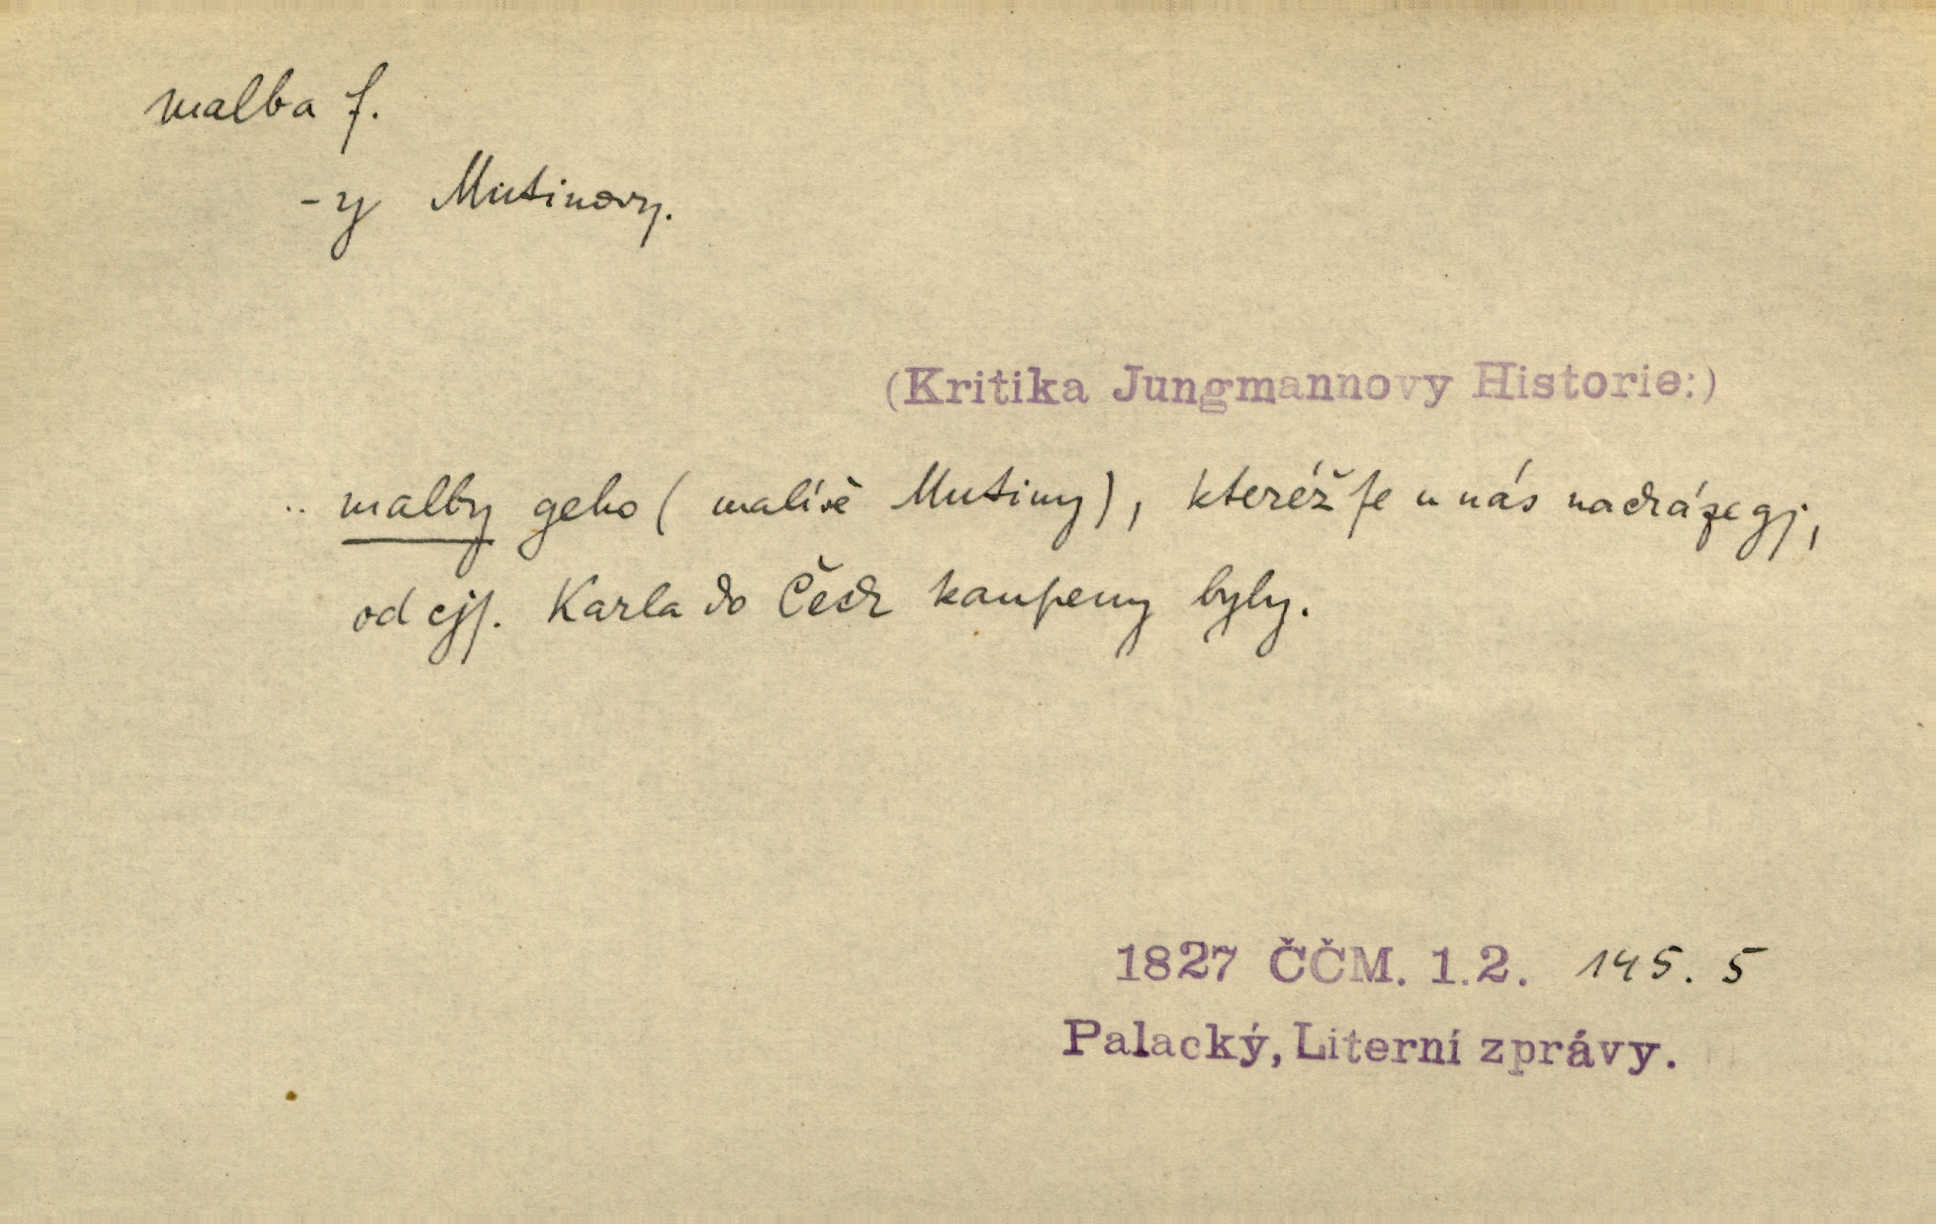 malba f.
-y Mutinovy.
(Kritika Jungmannovy Historie:)
.. malby geho (malíře Mutiny), kteréž se u nás nacházegj,
od cjs. Karla do Čech kaupeny byly.
1827 ČČM. 1.2. 145. 5
Palacký, Literní zprávy.